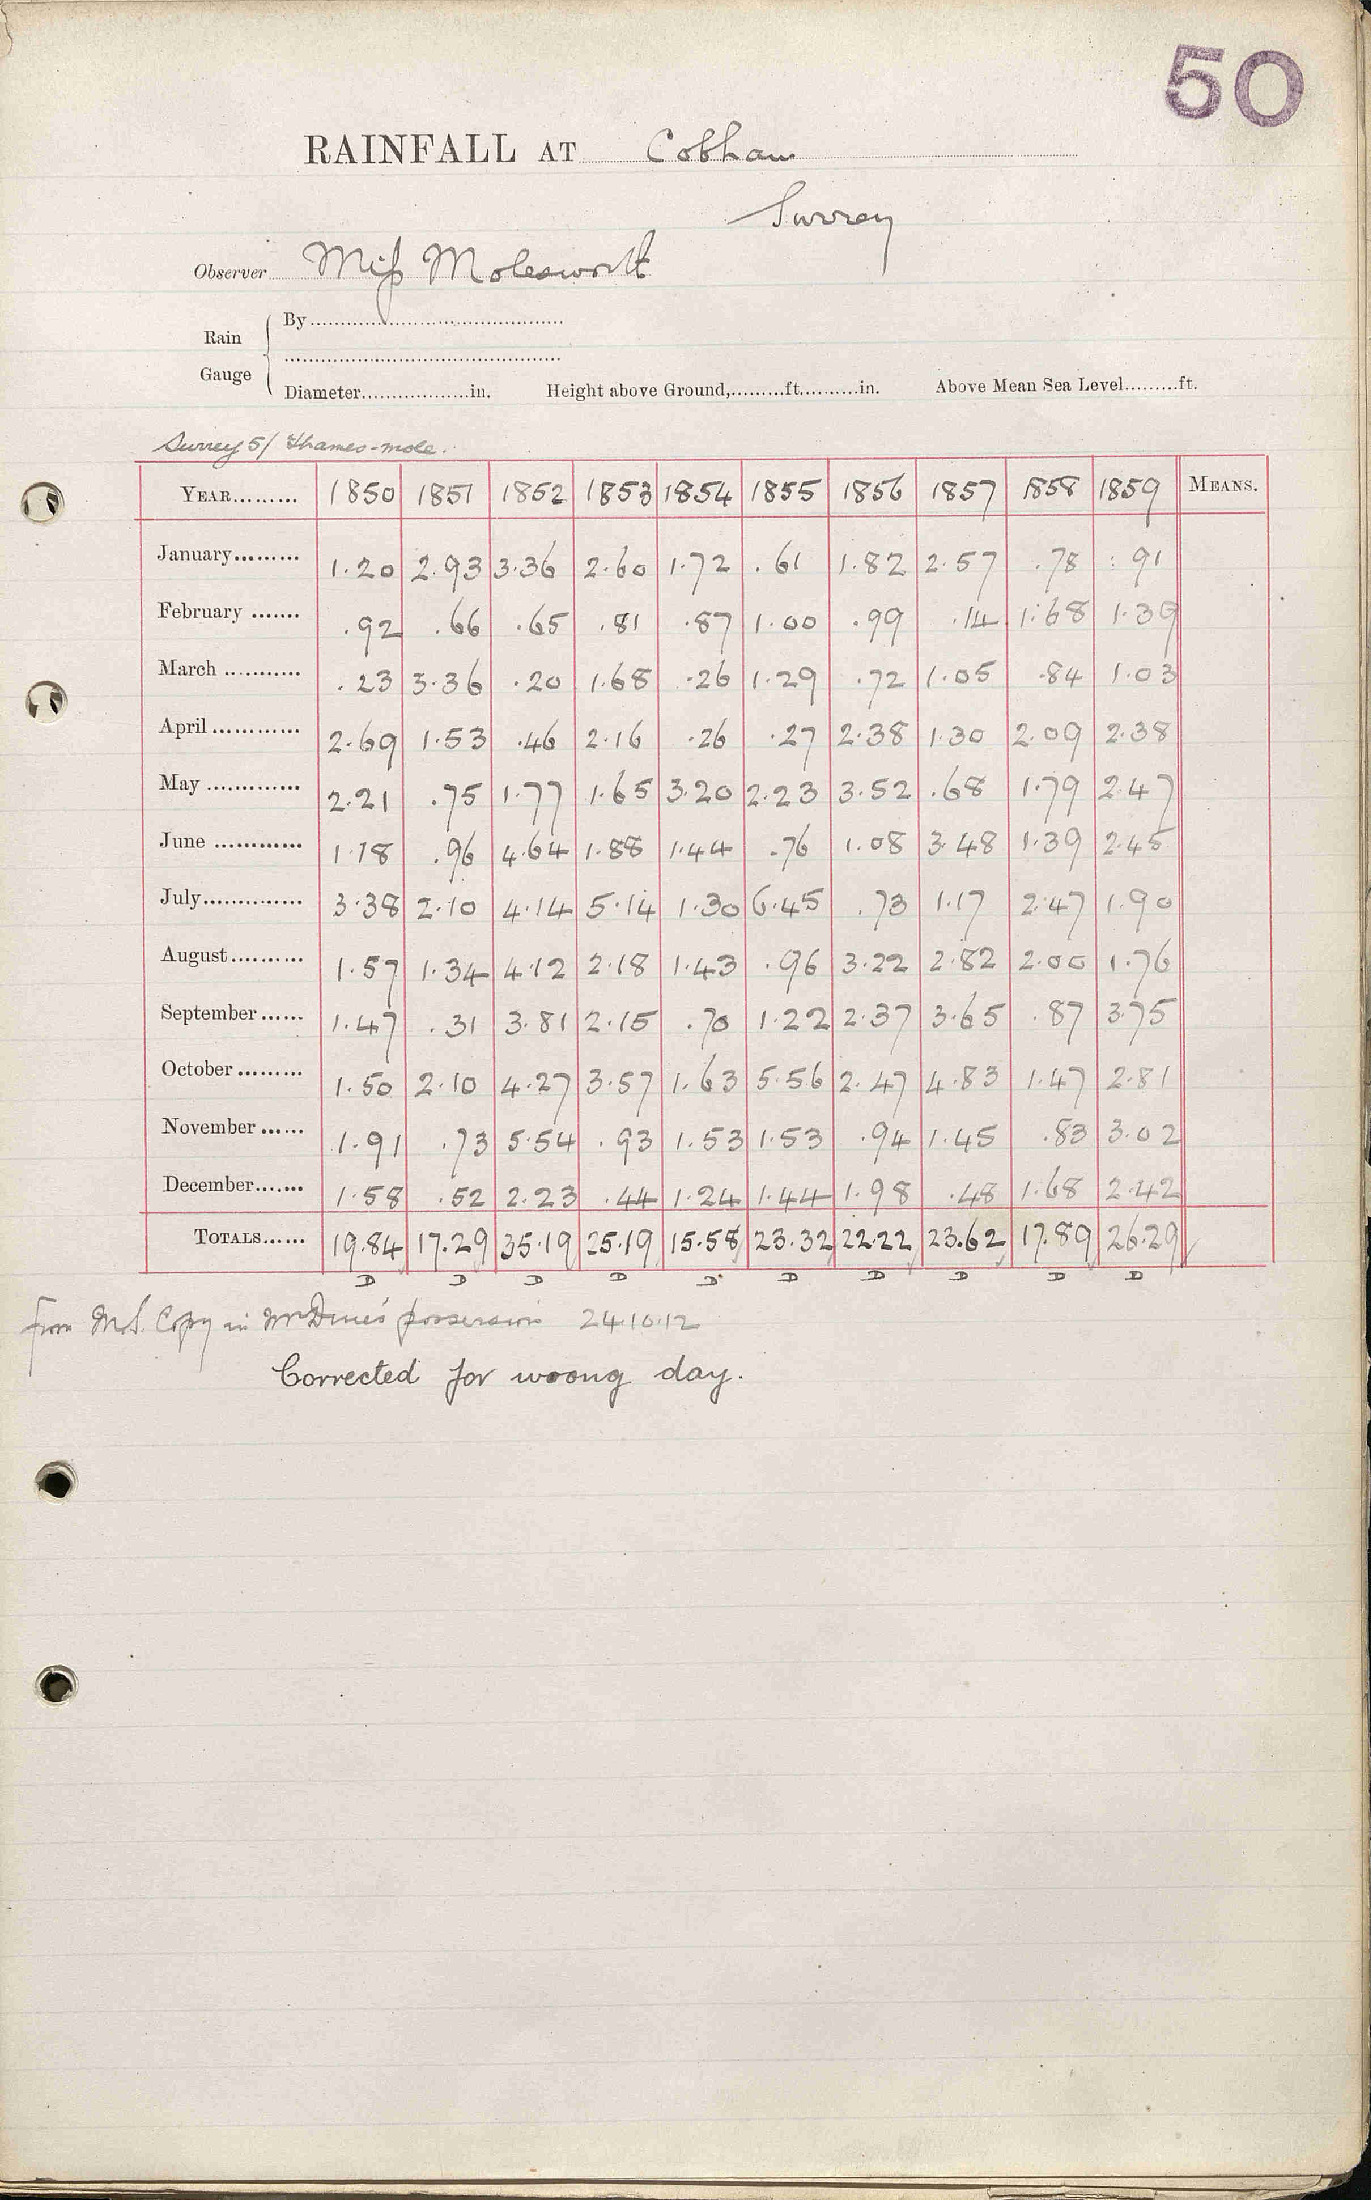 50
RAINFALL AT Cobham
Surrey
Observer Miss Molesworth
Rain Gauge
By
Diameter in. Height above Ground, ft. in. Above Mean Sea Level ft.
Surrey 5/ Thames-mole.
YEAR 1850 1851 1852 1853 1854 1855 1856 1857 1858 1859 MEANS.
January 1.20 2.93 3.36 2.60 1.72 .61 1.82 2.57 .78 .91
February .92 .66 .65 .81 .87 1.00 .99 .14 1.68 1.39
March .23 3.36 .20 1.68 .26 1.29 .72 1.05 .84 1.03
April 2.69 1.53 .46 2.16 .26 .27 2.38 1.30 2.09 2.38
May 2.21 .75 1.77 1.65 3.20 2.23 3.52 .68 1.79 2.47
June 1.18 .96 4.64 1.88 1.44 .76 1.08 3.48 1.39 2.45
July 3.38 2.10 4.14 5.14 1.30 6.45 .73 1.17 2.47 1.90
August 1.57 1.34 4.12 2.18 1.43 .96 3.22 2.82 2.00 1.76
September 1.47 .31 3.81 2.15 .70 1.22 2.37 3.65 .87 3.75
October 1.50 2.10 4.27 3.57 1.63 5.56 2.47 4.83 1.47 2.81
November 1.91 .73 5.54 .93 1.53 1.53 .94 1.45 .83 3.02
December 1.58 .52 2.23 .44 1.24 1.44 1.98 .48 1.68 2.42
TOTALS 19.84 17.29 35.19 25.19 15.58 23.32 22.22 23.62 17.89 26.29
D D D D D D D D D D
from M.S. Copy in Mr Dines's possession 24.10.12
Corrected for wrong day.